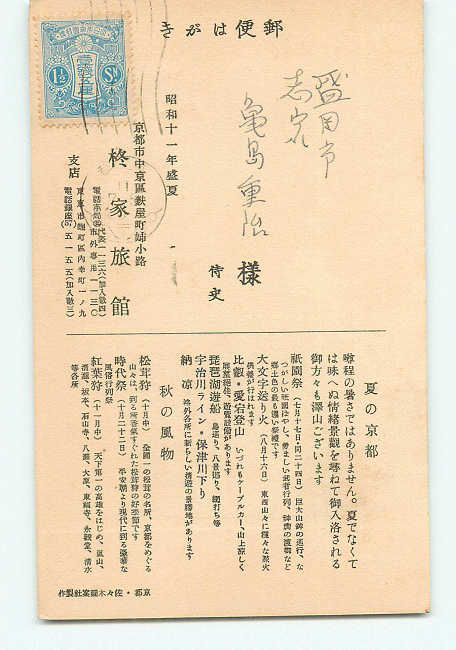 郵便はがき
1½ Sn
盛岡市
亀島重治
様
侍史
昭和十一年盛夏
京都市中京區麩屋町姉小路
柊家旅館
支店
東京市麹町區内幸町一ノ九
電話銀座(57)五一五五(加入數三)
夏の京都
喰程の暑さではありません。夏でなくて
は味へぬ情緒景觀を尋ねて御入洛される
御方々も澤山ございます
祇園祭(七月十七日・同二十四日)巨大山鉾の巡行、な
大文字送り火(八月十六日)東西山々に種々な點火
供養が行はれます
比叡・愛宕登山 いづれもケーブルカー、山上涼しく
琵琶湖遊船 島巡り、八景巡り、網打ち等
宇治川ライン・保津川下り
納凉 洛外各所に新らしい清遊の景勝地があります
秋の風物
松茸狩(十月中)全國一の松茸の名所、京都をめぐる
山々は、到る所香氣すぐれた松茸狩の好季節です
時代祭(十月二十二日)平安朝より現代に到る豪華な
風俗行列祭
紅葉狩(十一月中)天下第一の高雄をはじめ、嵐山、
清瀧、坂本、石山寺、八瀬、大原、東福寺、永觀堂、清水
等各所
京都・佐々木圖案社製作